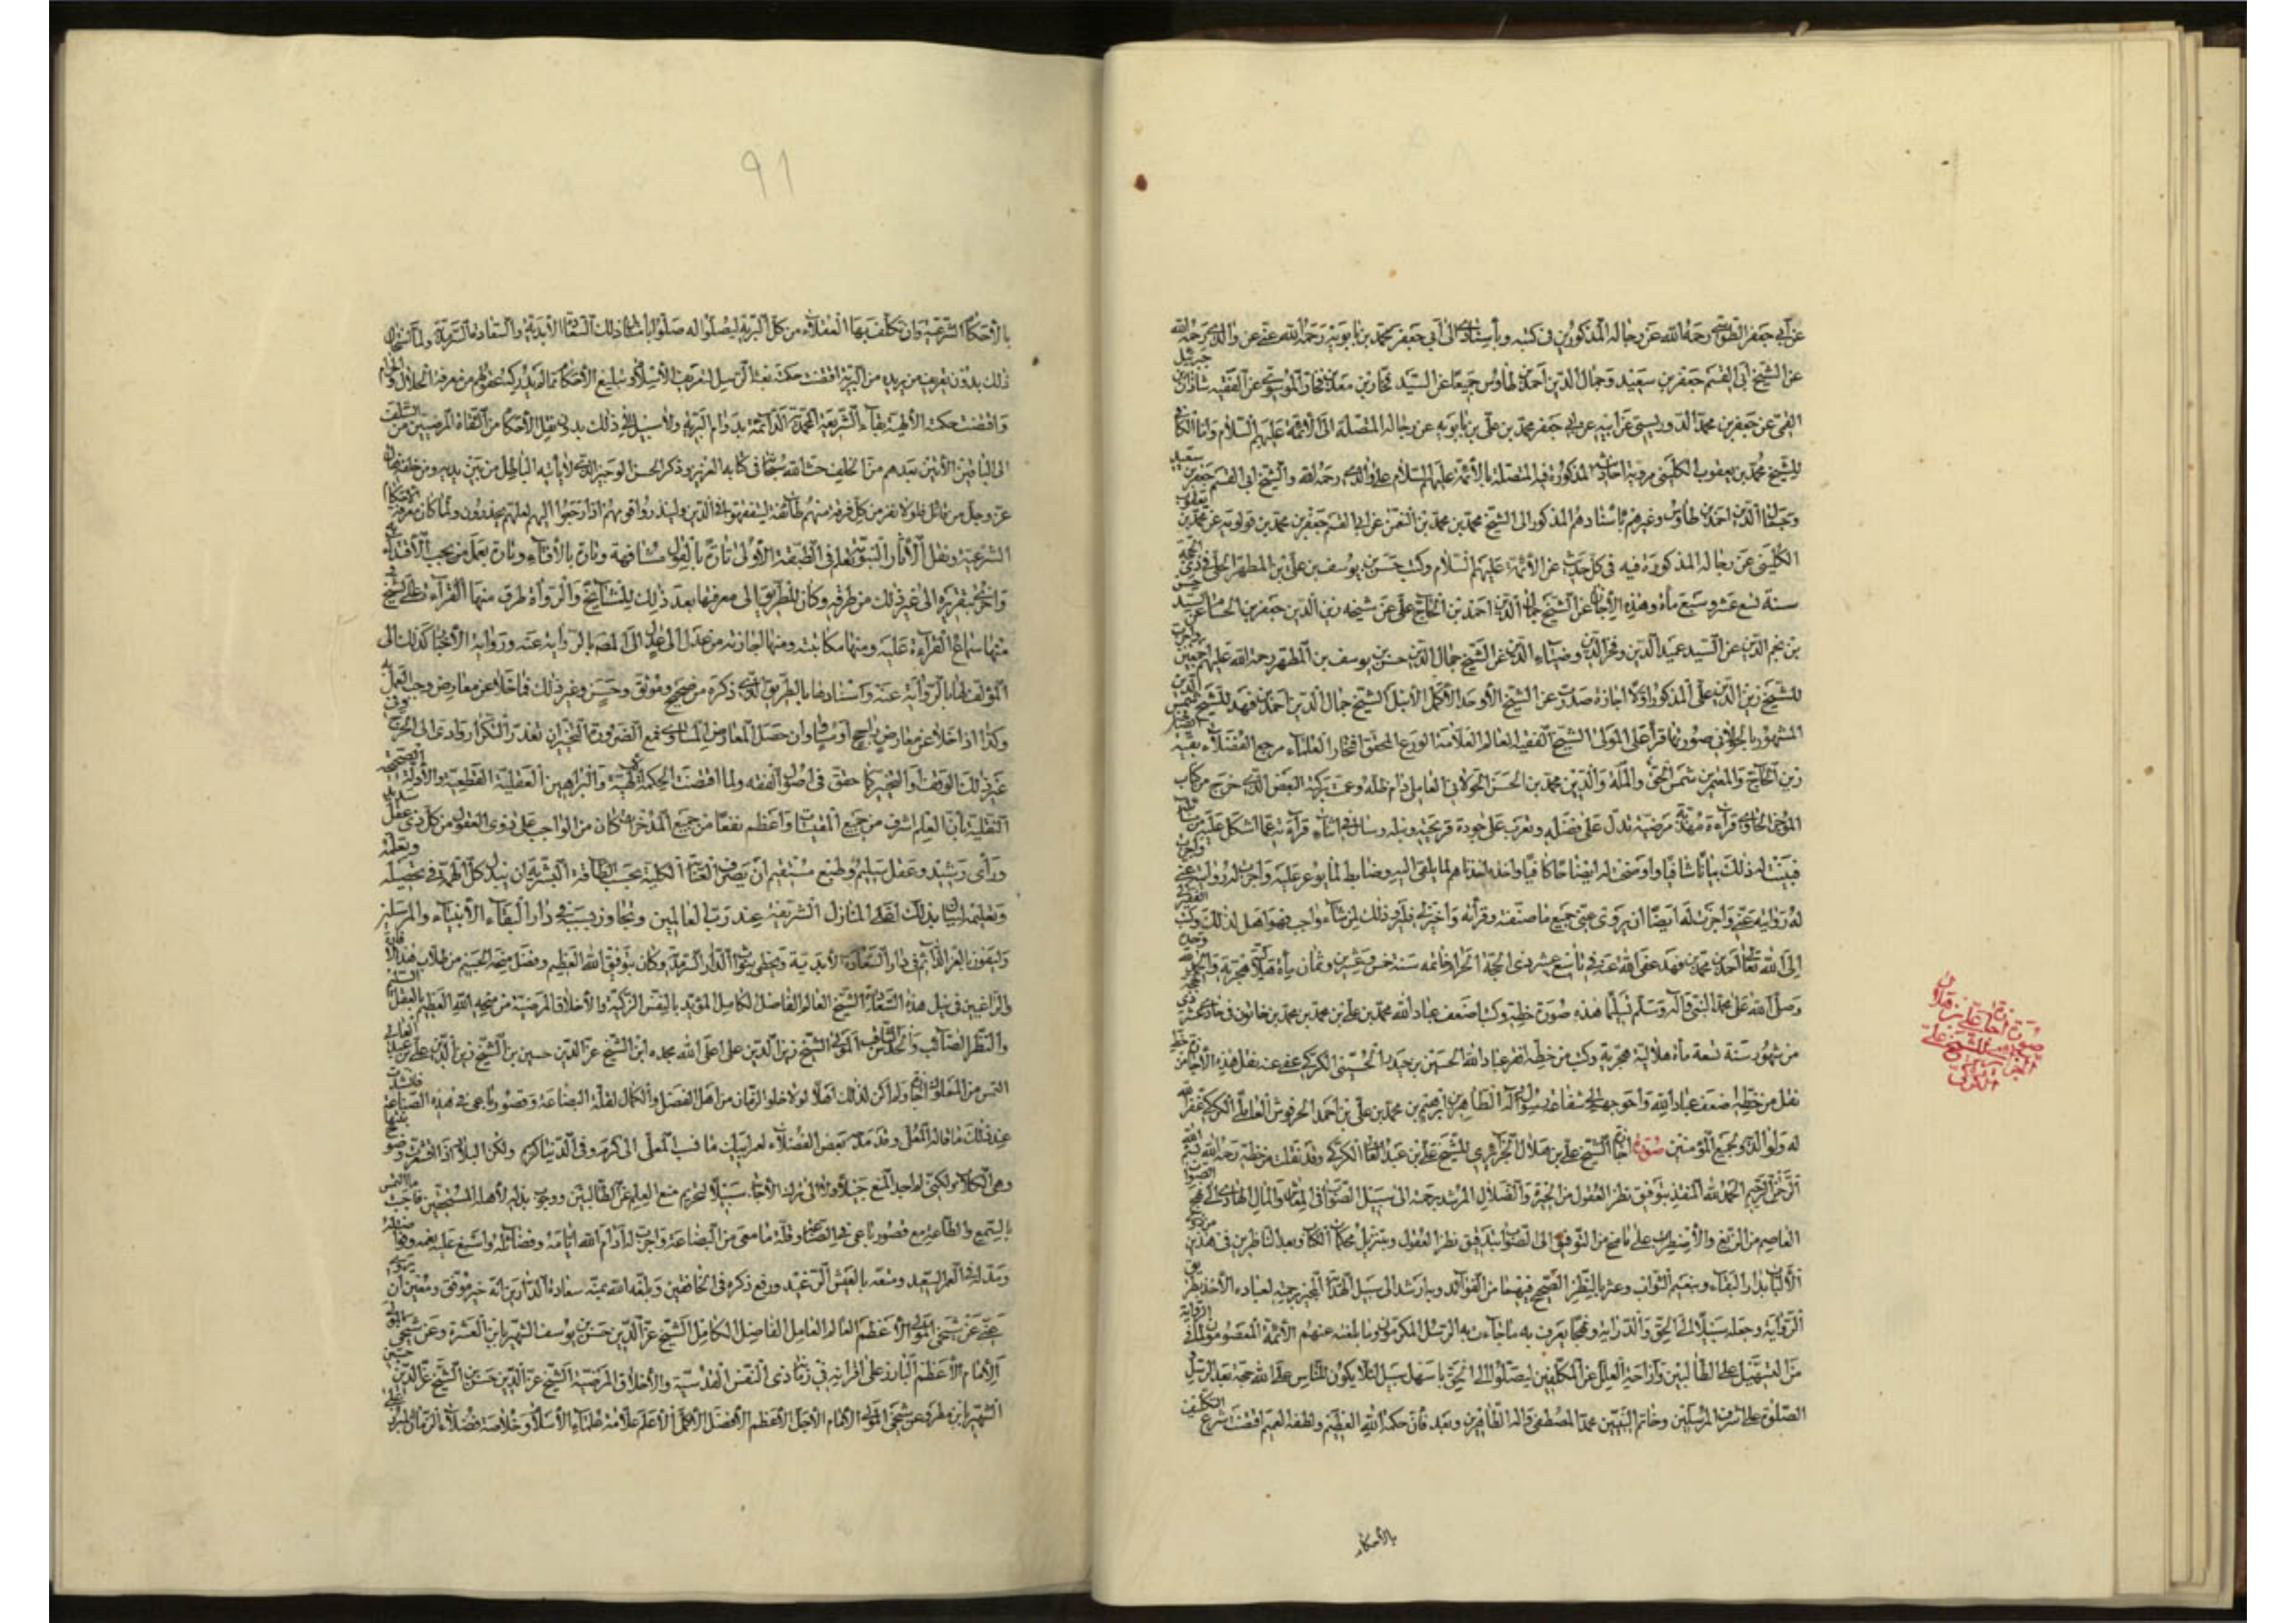 عن أبي جعفر الطوسي رحمه الله عن رجاله المذكورين في كتبه وبأسناده الى أبي جعفر محمد بن بابويه رحمه الله عنه عن والدي رحمه الله
عن الشيخ أبي القسم جعفر بن سعيد وجمال الدين أحمد بن طاوس جميعا عن السيد فخار بن معد بن فخار الموسوي عن الفقيه شاذان بن جبرئيل
القمي عن جعفر بن محمد الدوريستي عن ابيه عن ابي جعفر محمد بن علي بن بابويه عن رجاله المتصلة الى الأئمة عليهم السلام واما الكافي
للشيخ محمد بن يعقوب الكليني فرويت احاديثه المذكورة فيه المتصلة بالأئمة عليهم السلام عن والدي رحمه الله والشيخ ابي القسم جعفر بن سعيد
وجمال الدين احمد بن طاوس وغيرهم باسنادهم المذكور الى الشيخ محمد بن محمد بن النعمن عن ابي القسم جعفر بن محمد بن قولويه عن محمد بن يعقوب
الكليني عن رجاله المذكورة فيه في كل حديث عن الأئمة عليهم السلام وكتب حسن بن يوسف بن علي بن المطهر الحلي في ذي الحجة
سنة تسع عشر وسبع مأة وهذه الإجازة عن الشيخ جمال الدين احمد بن الحاج علي عن شيخه زين الدين جعفر بن الحسام عن السيد حسن
بن نجم الدين عن السيد عميد الدين وفخر الدين وضياء الدين عن الشيخ جمال الدين حسن بن يوسف بن المطهر رحمة الله عليهم اجمعين
للشيخ زين الدين علي المذكور اولا اجازة صدرت عن الشيخ الأوحد الأكمل الأنبل الشيخ جمال الدين احمد بن فهد للشيخ شمس الدين
المشهور بالحولاني صورتها قرأ علي المولى الشيخ الفقيه العالم العلامة الورع المحقق افتخار العلماء مرجع الفضلاء بقية
زين الحاج والمعتمرين شمس الحق والملة والدين محمد بن الحسن الحولاني العاملي دام ظله وعمت بركته البعض الذي خرج من كتاب
الموجز الحاوي قراءة مهذبة مرضية تدل على فضله وتعرب على جودة قريحته ونبله وسال في اثناء قرآته عما اشكل عليه من
فبينت له ذلك بيانا شافيا واوضحت له ايضاحا كافيا واخذه
له روايته عني واجزت له ايضا ان يروي عني جميع ما صنفته وقرأته واخترته فليرو ذلك لمن شاء واحب فهو اهل لذلك وكتب الفقير
إلى الله تعالى احمد بن محمد بن فهد عفى الله عنه في تاسع عشر ذي الحجة الحرام خاتمة سنة خمس وعشرين وثمان مأة هلالية هجرية والحمد لله وحده
وصلى الله على محمد النبي وآله وسلم تسليما هذه صورة خطه وكتب اضعف عباد الله محمد بن علي بن محمد بن محمد بن خاتون في حادي عشر ذي
من شهور سنة تسعة مأة هلالية هجرية وكتب من خطه افقر عباد الله الحسين بن حيدر الحسيني الكركي عفي عنه نقل هذه الإجازة من خط
نقل من خطه اضعف عباد الله واحوجهم الى شفاعة رسوله وآله الطاهرين ابرهيم بن محمد بن علي بن احمد الحرفوش العاملي الكركي غفر الله
له ولوالديه ولجميع المؤمنين صورة اجازة الشيخ علي بن هلال الجزائري للشيخ علي بن عبد العالي الكركي وقد نقلت من خطه رحمه الله بسم الله
الرحمن الرحيم الحمد لله المنقذ بتوفيق نظر العقول من الحيرة والضلال المرشد برحمته الى سبيل الصواب في المعاش والمال الهادي الى نهج الصواب
العاصم من الزيغ والاضطراب على ما منح من التوفيق الى الصواب بتدقيق نظر العقول وبتنزيل محكمات الكتاب
بدار البقاء وبنعيم الثواب وعثر بالنظر الصحيح فيهما من الفوائد وبارشد الى سبيل الهدى
الرواية وجعله سبيلا الى الحق والدراية وفجا يعرف به ما جاءت به الرسل المكرمون وما بلغته عنهم الأئمة المعصومون
من التسهيل على الطالبين وازاحة العلل عن المكلفين ليصلوا الى الحق باسهل سبيل لئلا يكون للناس على الله حجة بعد الرسل
الصلوة على اشرف المرسلين وخاتم النبيين محمد المصطفى وآله الطاهرين وبعد فان حكمة الله العظيم ولطفه العميم اقتضت شرع التكليف
بالأحكام
صورة اجازة علي بن هلال الجزائري للشيخ علي الكركي
91
بالأحكام الشرعية وان تكلف بها العقلاء من كل البرية ليصلوا له صلوا بامتثال ذلك السعادة الأبدية والسعادة السرمدية ولما استحال
ذلك بدون تعريف من يريده من البرية اقتضت حكمته بعثة الرسل لتعريف الأسلام وتبليغ الأحكام مما لم يدركه عقولهم من معرفة الحلال والحرام
واقتضت حكمته الالهية بقاء الشريعة المحمدية الدائمة بدوام البرية ولا سبيل الى ذلك بدون نقل الأحكام من الثقاة المرضيين من السلف
الى الباقين الآتين بعدهم من الخلف حث الله سبحانه في كتابه العزيز وذكره الحسن الوجيز الذي لا يأتيه الباطل من بين يديه ومن خلفه فقال
عز وجل من قائل فلولا نفر من كل فرقة منهم طائفة ليتفقهوا في الدين ولينذروا قومهم اذا رجعوا اليهم لعلهم يحذرون ولما كان معرفة الاحكام
الشرعية ونقل الآثار النبوية تعلم في الطبقة الأولى تارة بالقول مشافهة وتارة بالأفتاء وتارة بعمل من يجب الاقتداء به
واخرى بتقريره الى غير ذلك من طرقه وكان الطريق الى معرفتها بعد ذلك للمشايخ والرواة طرق منها القراءة على الشيخ
منها سماع القراءة عليه ومنها مكاتبته ومنها اجازته من عدل الى عدل
المؤلف لها بالرواية عنه واسنادها بالطريق الذي ذكره من صحيح وموثق وحسن وغير ذلك فما خلا عن معارض وجب العمل به
وكذا اذا خلا عن معارض راجح او مساو وان حصل المعارض المساوي فمع الضرورة التخيير ان تعذر التكرار وادى الى الحرج وفي
غير ذلك الوقف او التخيير كما حقق في اصول الفقه ولما اقتضت الحكمة الالهية والبراهين العقلية القطعية والأدلة الصحيحة
النقلية بان العلم اشرف من جميع المقتنيات واعظم نفعا من جميع المدخرات كان من الواجب على ذوي العقول من كل ذي عقل سديد
ورأي رشيد وعقل سليم وطبع مستقيم ان يصرف العناية الكلية بحسب الطاقة البشرية ان يبذل كل الهمة في تحصيله وتعلمه
وتعليمه لينال بذلك اعلى المنازل الشريفة عند رب العالمين وتجاوز بسببه في دار البقاء الأنبياء والمرسلين
وليفوز بالعز الدائم في دار السعادة الأبدية ويحظى بثواب الدار السرمدية وكان بتوفيق الله العظيم وفضل منحه الجسيم من طلاب هذه
والراغبين في نيل هذه السعادة الشيخ العالم الفاضل الكامل المؤيد بالنفس الزكية والأخلاق المرضية من منحه الله العظيم بالعقل السليم
والنظر الصائب والحدس الثاقب المولى الشيخ زين الدين علي اعلى الله مجده ابن الشيخ عز الدين حسين بن الشيخ زين الدين علي بن عبد العالي
التمس من المملوك اجازة ولم اكن لذلك اهلا لولا خلو الزمان من اهل الفضل والكمال لقلة البضاعة وقصور باعي في هذه الصناعة فانشدت
عند ذلك ما قاله المعلى وقد مدحه بعض الفضلاء لعمر ابيك ما نسب المعلى الى كرم وفي الدنيا كريم ولكن البلاد اذا اقشعرت وصوح نبتها
منع العلم عن الطالبين ووجوب بذله لأهله المستحقين فاجبت ملتمسه
بالسمع والطاعة مع قصور باعي في الصناعة وقلة ما معي من البضاعة واجزت له ادام الله ايامه وفضائله واسبغ عليه نعمه
ومد له في العمر السعيد ومتعه بالعيش الرغيد ورفع ذكره في الخافقين وبلغه الله بمنه سعادة الدارين انه خير موفق ومعين ان يروي
عني عن شيخي المولى الأعظم العالم العامل الفاضل الكامل الشيخ عز الدين حسن بن يوسف الشهير بابن العشرة وعن شيخي المولى
الإمام الأعظم البارز على اقرانه في زمانه ذي النفس القدسية والأخلاق المرضية الشيخ عز الدين حسن بن الشيخ عز الدين حسين
الشهير بابن مطر وعن شيخي المولى الإمام الأجل الأعظم الأفضل الأكمل الأعلم علامة علماء الأسلام وخلاصة فضلاء الزمان